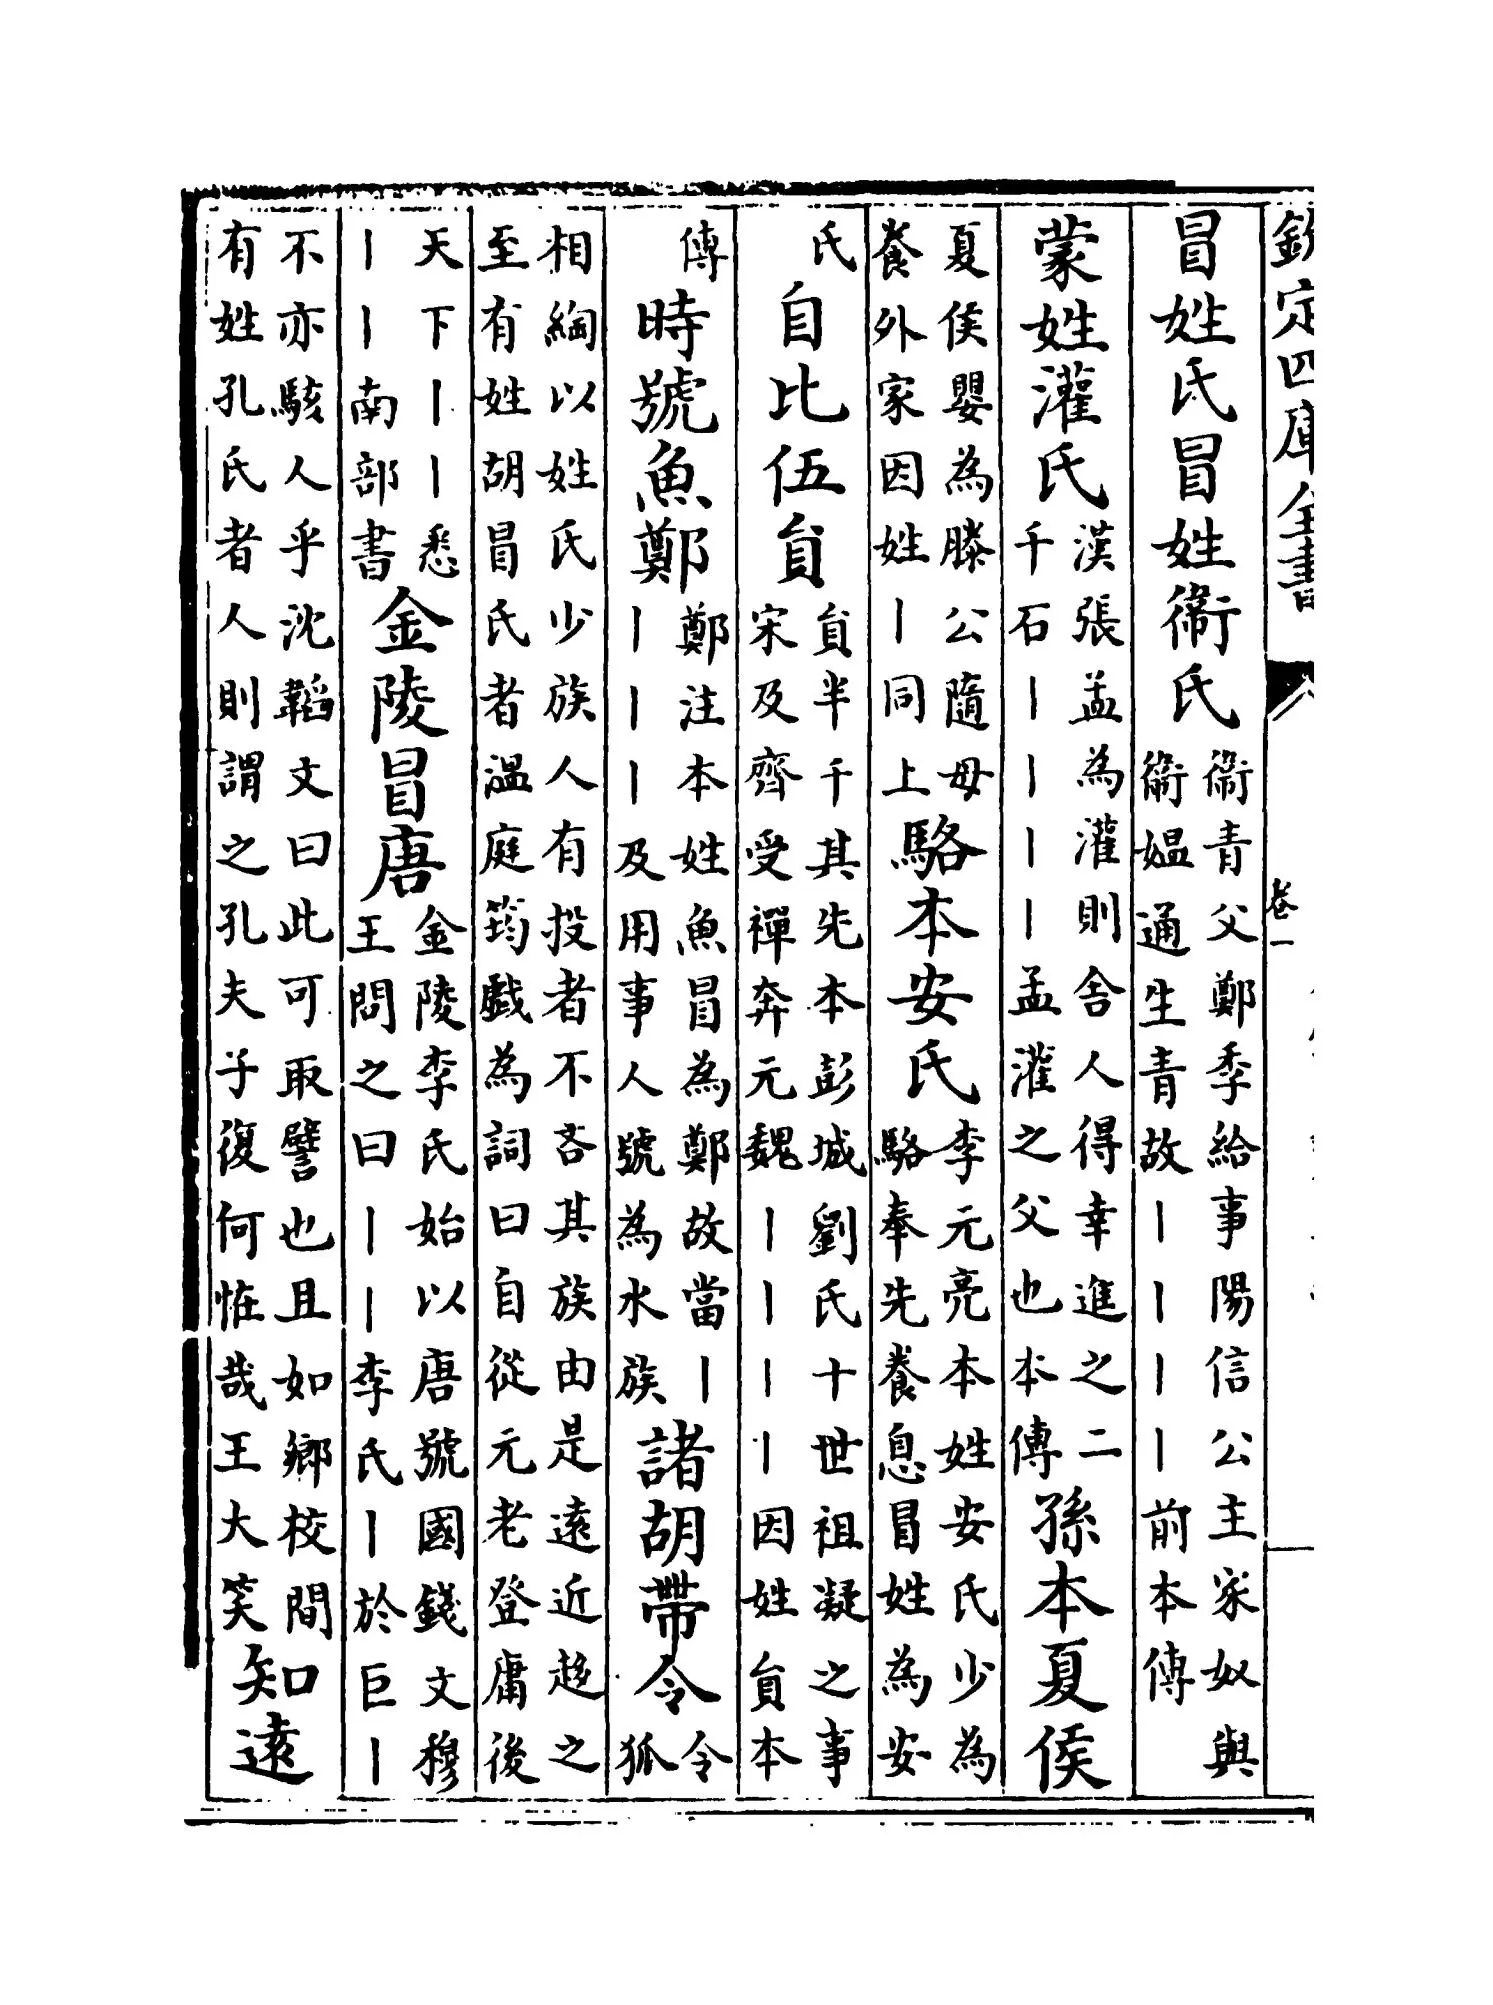 欽定四庫全書
卷一
冒姓氏冒姓衞氏
衞青父鄭季給事陽信公主家奴與
衞媪通生青故丨丨丨丨前本傳
蒙姓灌氏
漢張孟為灌則舍人得幸進之二
千石丨丨丨丨孟灌之父也本傳
孫本夏侯
夏侯嬰為滕公隨母
養外家因姓丨同上
駱本安氏
李元亮本姓安氏少為
駱奉先養息冒姓為安
氏
自比伍員
員半千其先本彭城劉氏十世祖凝之事
宋及齊受禪奔元魏丨丨丨丨因姓員本
傳
時號魚鄭
鄭注本姓魚冒為鄭故當丨
丨丨丨及用事人號為水族
諸胡帶令
令
狐
相綯以姓氏少族人有投者不吝其族由是遠近趍之
至有姓胡冒氏者溫庭筠戲為詞曰自從元老登庸後
天下丨丨悉
丨丨南部書
金陵冒唐
金陵李氏始以唐號國錢文穆
王問之曰丨丨李氏丨於巨丨
不亦駭人乎沈韜文曰此可取譬也且如鄉校間
有姓孔氏者人則謂之孔夫子復何恠哉王大笑
知遠